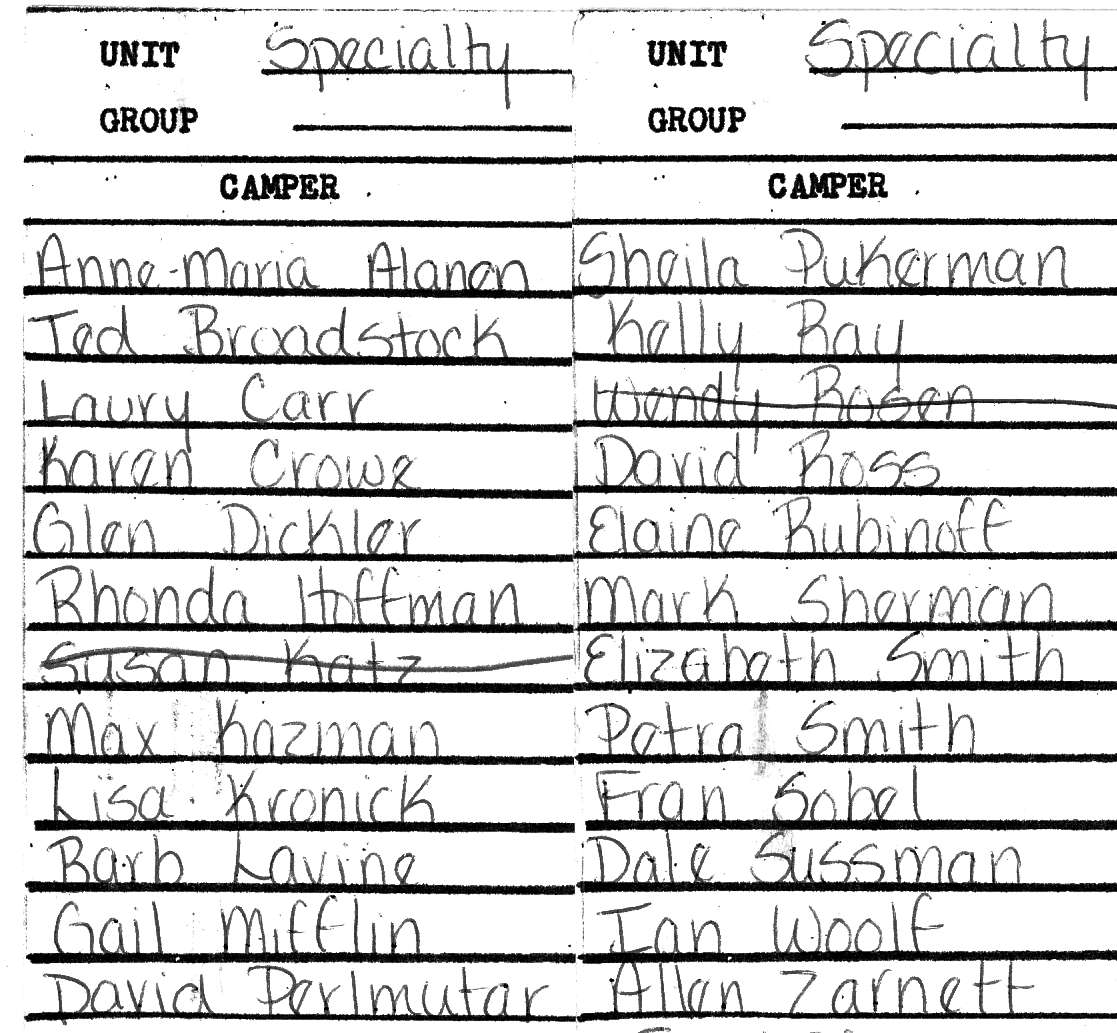 UNIT Specialty
GROUP
CAMPER
Anne-Maria Alanen
Ted Broadstock
Laury Carr
Karen Crowe
Glen Dickler
Rhonda Hoffman
Susan Katz
Max Kazman
Lisa Kronick
Barb Lavine
Gail Mifflin
David Perlmutar
UNIT Specialty
GROUP
CAMPER
Sheila Pukerman
Kelly Ray
Wendy Rosen
David Ross
Elaine Rubinoff
Mark Sherman
Elizabeth Smith
Petra Smith
Fran Sobel
Dale Sussman
Ian Woolf
Allen Zarnett